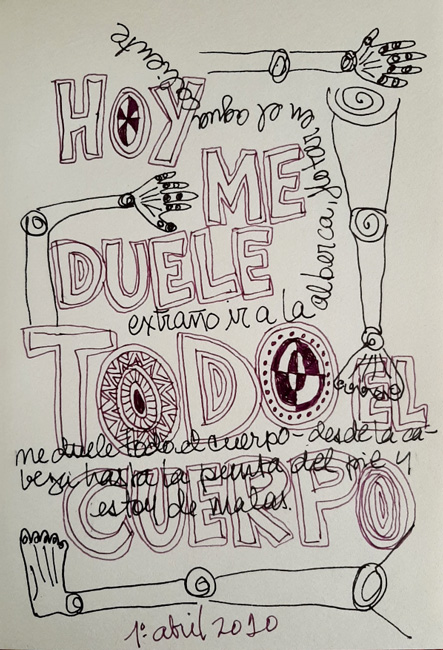 HOY
ME
DUELE
TODO EL
CUERPO
extraño ir a la alberca, flotar, en el agua caliente
me duele todo el cuerpo - desde la ca-
beza hasta la punta del pie y
estoy de malas.
1º abril 2010